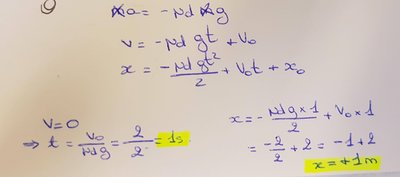 m̸a = -μd m̸g
v = -μd gt + v₀
x = -μd gt²/2 + v₀t + x₀
v=0
⇒ t = v₀/μdg = 2/2 = 1s
x = - μd g×1/2 + v₀×1
= -2/2 + 2 = -1+2
x = +1m